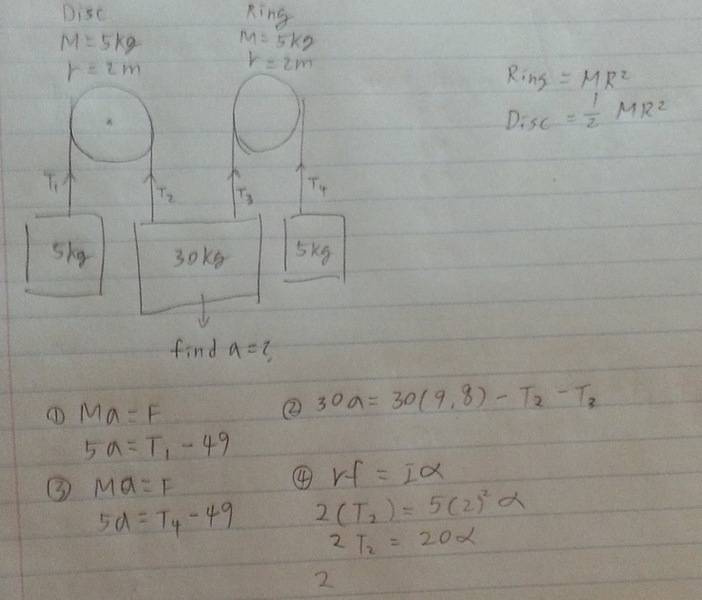 Disc
M = 5kg
r = 2m
Ring
M = 5kg
r = 2m
Ring = MR²
Disc = 1/2 MR²
T₁
T₂
T₃
T₄
5kg
30kg
5kg
find a = ?
① Ma = F
5a = T₁ - 49
② 30a = 30(9,8) - T₂ - T₃
③ Ma = F
5a = T₄ - 49
④ rf = Iα
2(T₂) = 5(2)² α
2T₂ = 20α
2